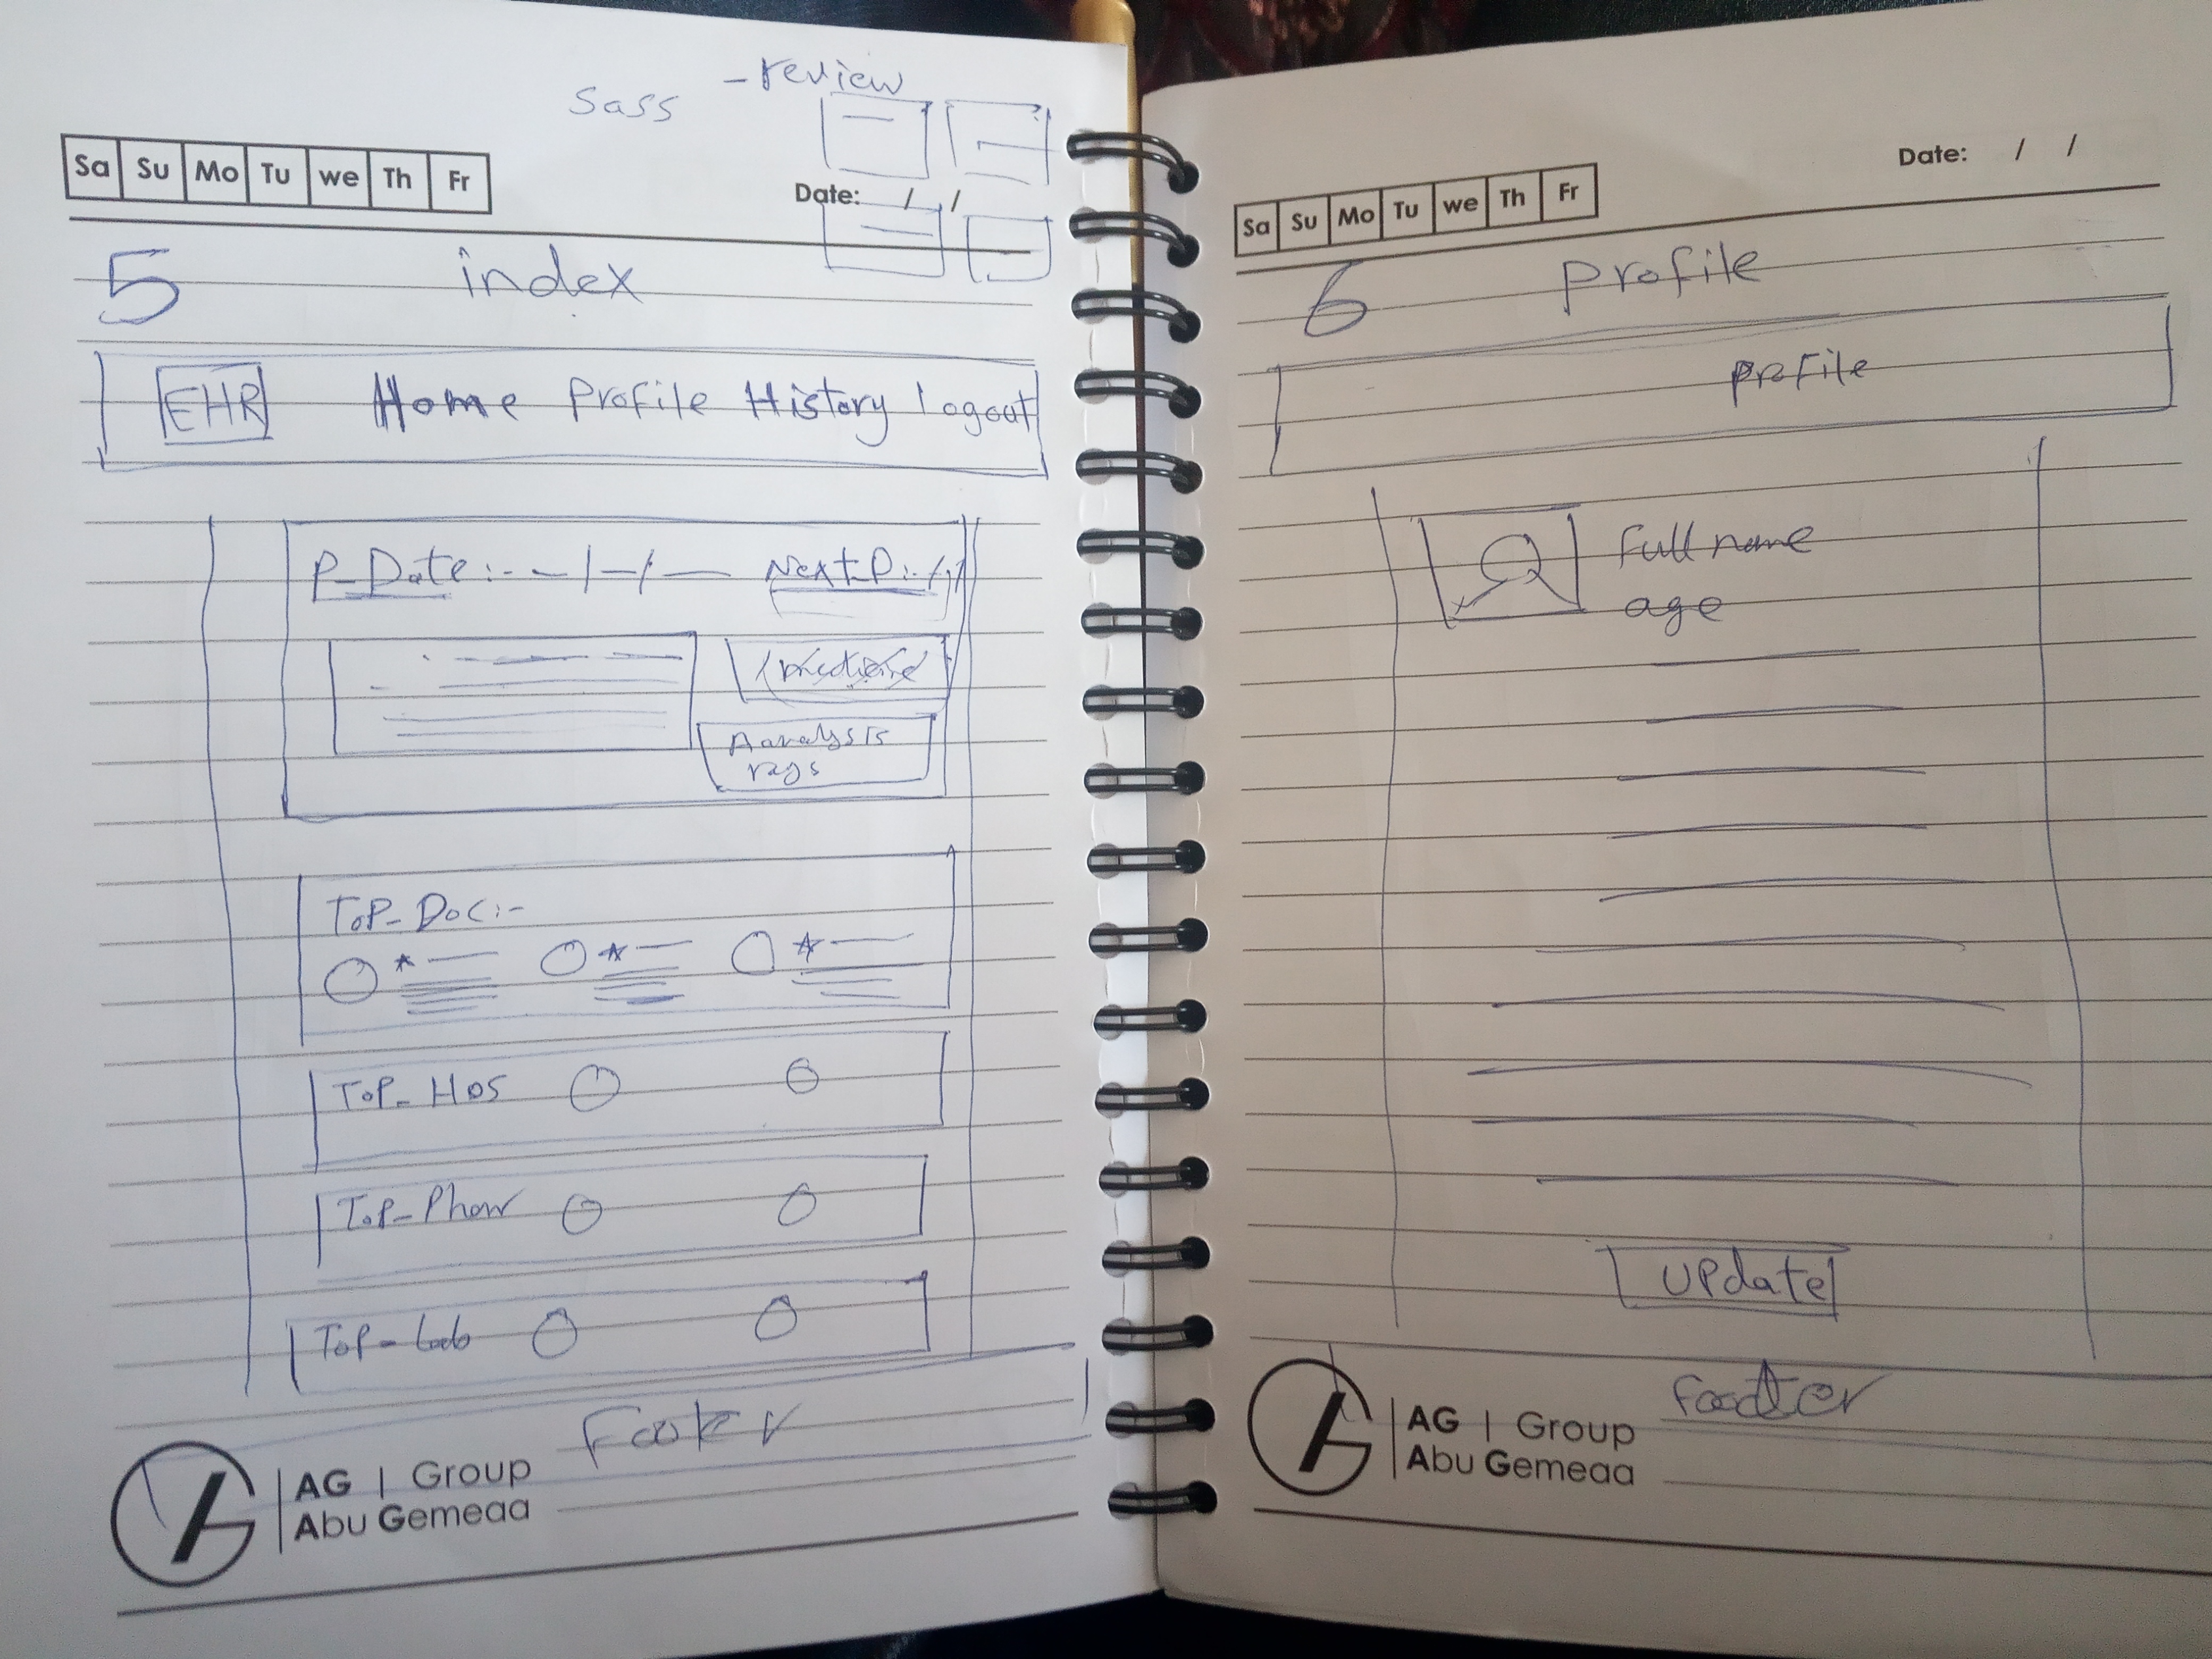 - review
Sass
Sa Su Mo Tu we Th Fr
Date: / /
5 index
EHR Home Profile History Logout
P-Date:- -/-/- Next-D:- / /
Aanalysis
rays
ToP- Doc:-
ToP- Hos
ToP- Phar
ToP- Lab
Footer
AG | Group
Abu Gemeaa
Date: / /
Sa Su Mo Tu we Th Fr
6 Profile
Profile
Full name
age
UPdate
Footer
AG | Group
Abu Gemeaa